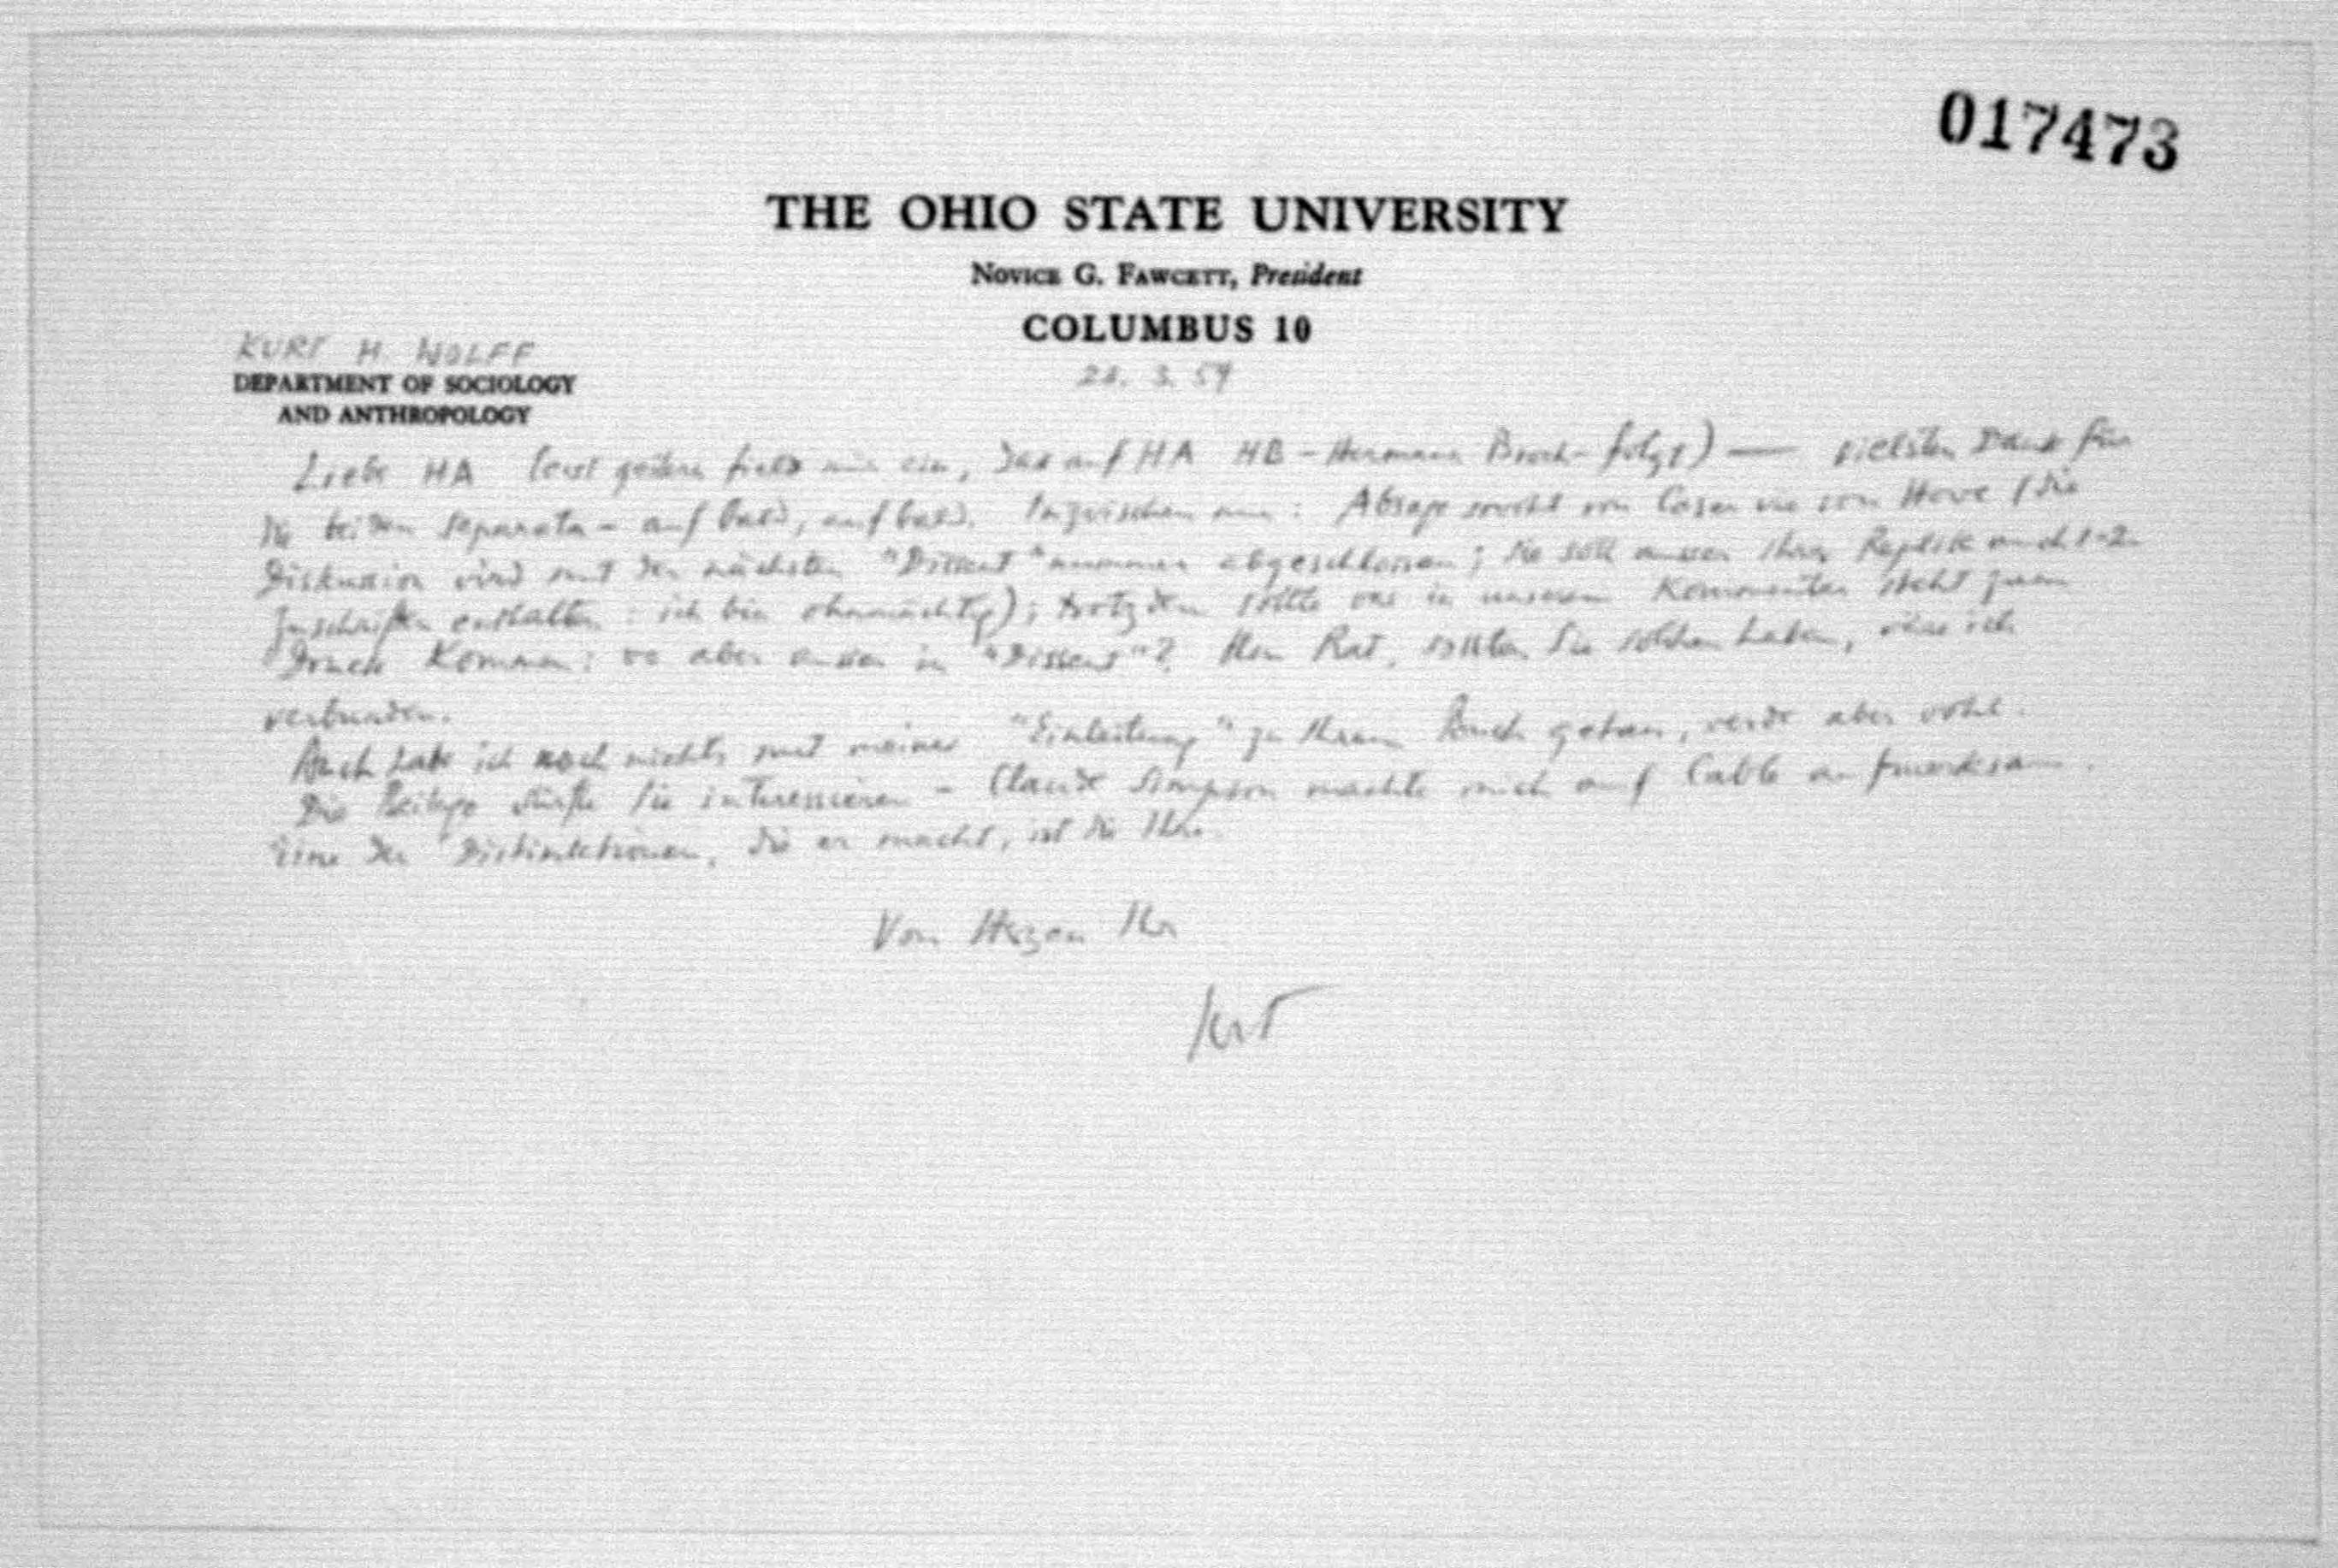 017473
THE OHIO STATE UNIVERSITY
Novice G. Fawcett, President
COLUMBUS 10
KURT H. WOLFF
DEPARTMENT OF SOCIOLOGY
AND ANTHROPOLOGY
3. 59
Liebe HA (erst gestern fiel mir ein, dass auf HA HB - Hermann Broch - folgt) — vielsten Dank für
die beiden Separata - auf bald, auf bald. Inzwischen nur: Absage sowohl von Coser wie von Howe (die
Diskussion wird mit der nächsten "Dissent"nummer abgeschlossen; sie soll ausser Ihrer Replik noch 1-2
Zuschriften enthalten: ich bin ohnmächtig); trotzdem sollte was in unseren Kommentaren steht zum
Druck kommen: wo aber ausser in "Dissent"? Ihrem Rat, sollten Sie solchen haben, wäre ich
verbunden.
Auch habe ich noch nichts mit meiner "Einleitung" zu Ihrem Buch getan, werde aber wohl.
Die Beilage dürfte Sie interessieren - Claude Simpson machte mich auf Cable aufmerksam.
Eine der Distinktionen, die er macht, ist die Ihre.
Von Herzen Ihr
Kurt